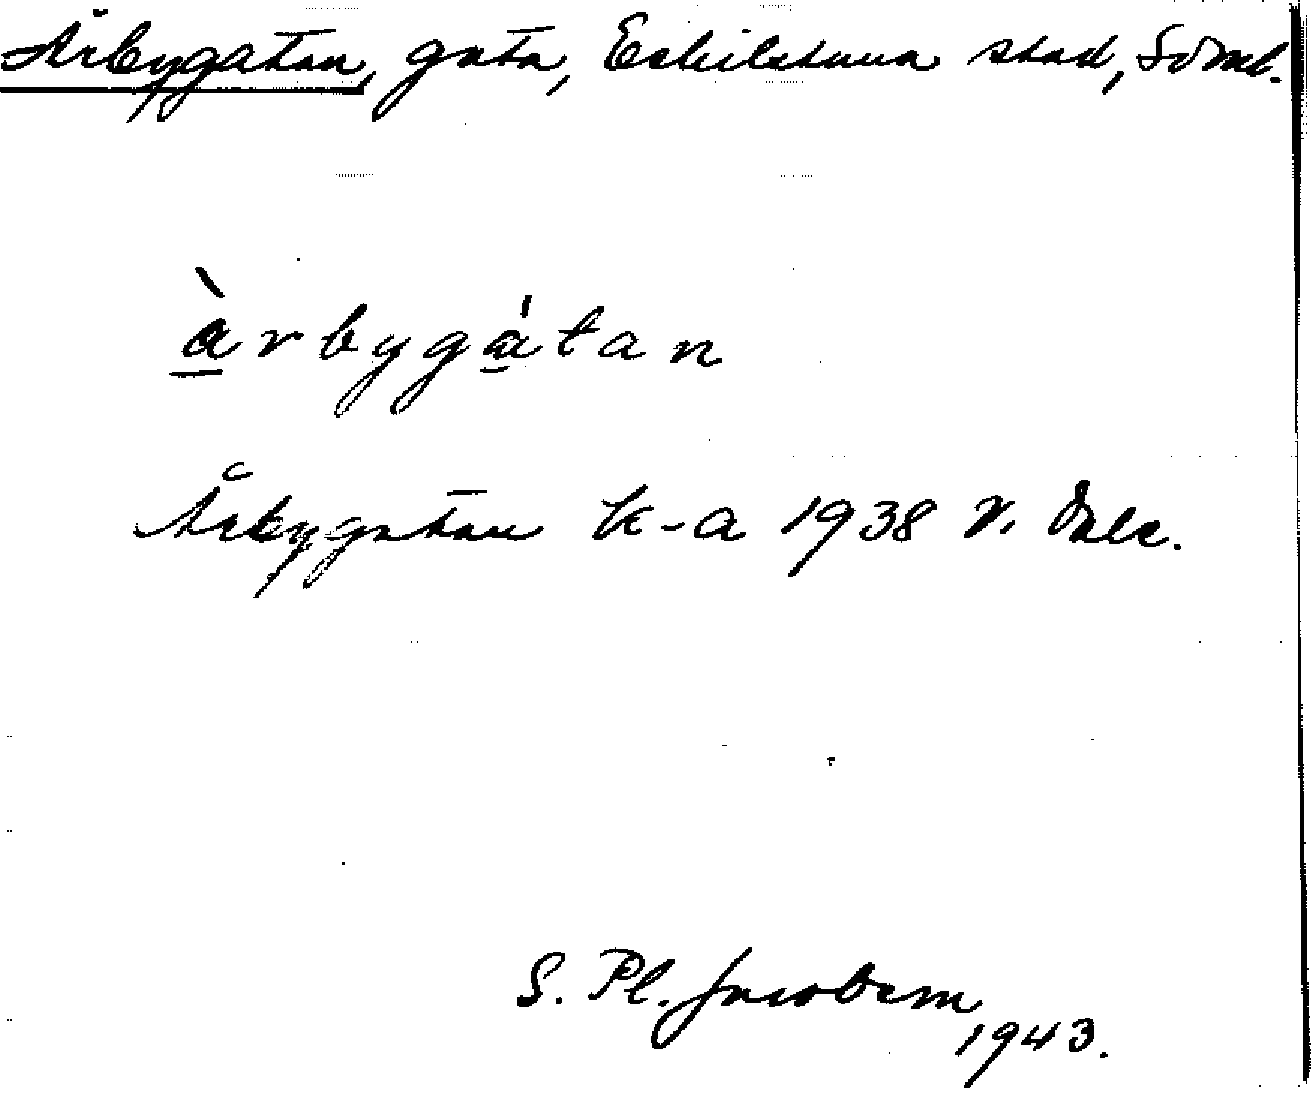 Årbygatan, gata, Eskilstuna stad, Södml.
àrbygátan
Årbygatan k-a 1938 V. Dale.
S. Pl. Jacobson
1943.